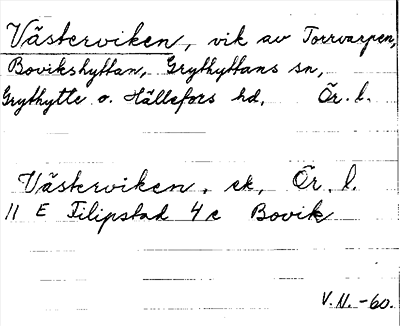 Västerviken, vik av Torrvarpen,
Bovikshyttan, Grythyttans sn,
Grythytte o. Hällefors hd, Ör. l.
Västerviken, ek, Ör. l.
11 E Filipstad 4 c Bovik
V.N.-60.